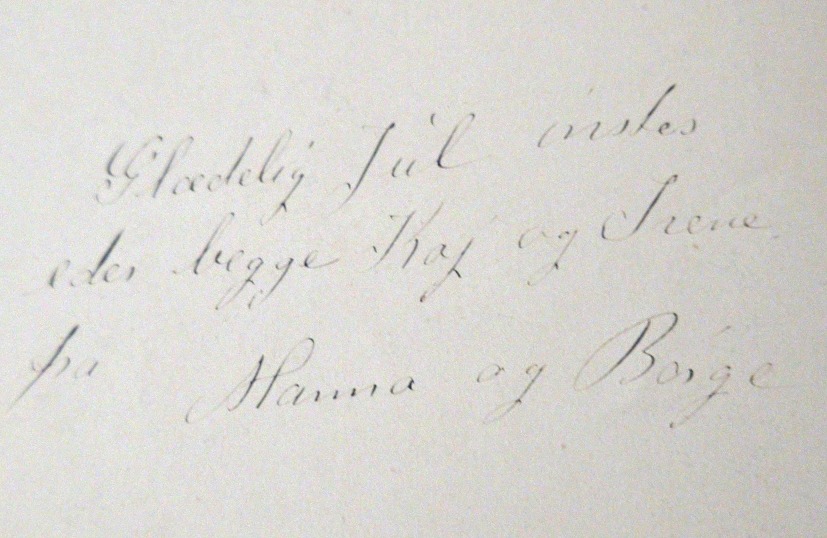 Glædelig Jul ønskes
eder begge Kaj og Irene
fra Hanna og Børge